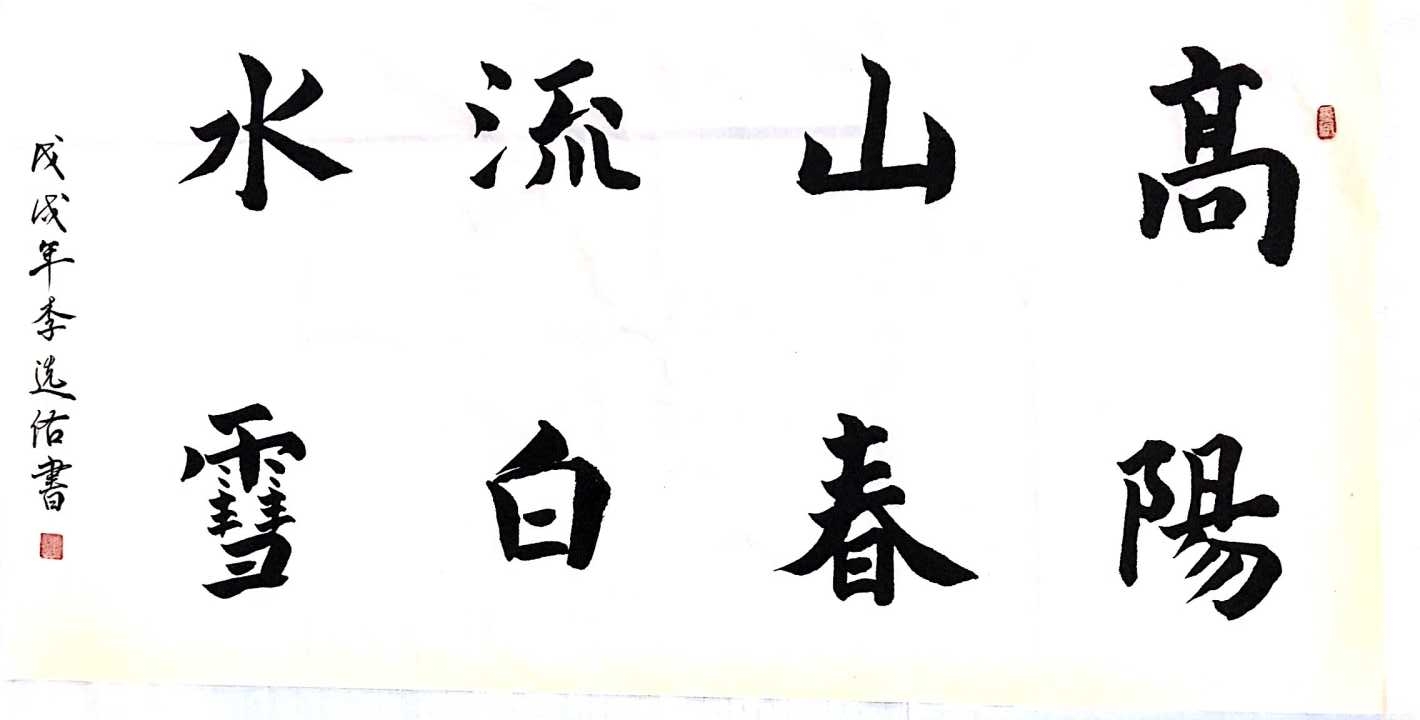 高山流水
陽春白雪
戊戌年李选佑書